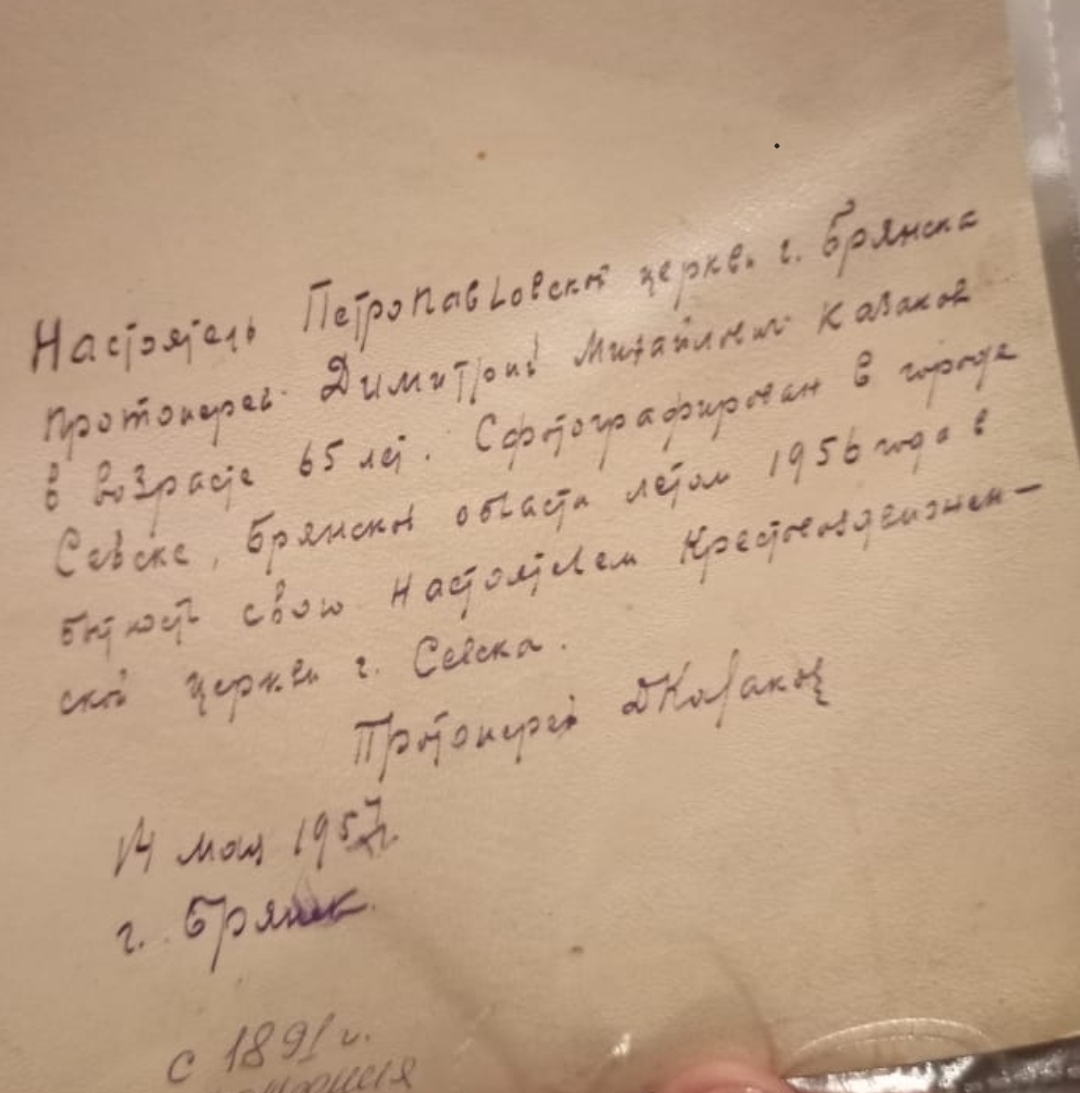 Настоятель Петропавловской церкви г. Брянска
протоиерей Димитрий Михайлович Казаков
в возрасте 65 лет. Сфотографирован в городе
Севске, Брянской области летом 1956 года в
бытность свою настоятелем Крестовоздвижен-
ской церкви г. Севска.
Протоиерей ДКазаков
14 мая 1957г.
г. Брянск.
с 1891 г.